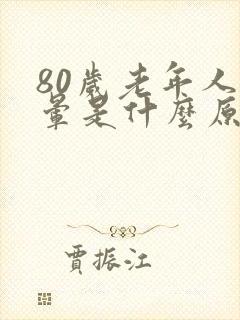 80歲老年人
暈是什麼原
賈振江